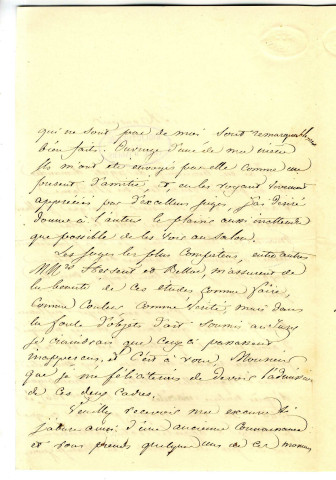 qui ne sont pas de moi sont remarquablement
bien faits. Ouvrage d'une de mes nièces
Ils m'ont été envoyés par elle comme un
présent d'amitié, et en les voyant vivement
appréciés par d'excellents juges, j'ai désiré
donner à l'auteur le plaisir aussi inattendu
que possible de les voir au Salon.
Les juges les plus compétens, entr'autres
MMrs et m'assurent de
la beauté de ces études comme faire,
comme couleur comme vérité; mais dans
la foule d'objets d'art soumis au Jury
je craindrais que ceux-ci passassent
inapperçus, et c'est à vous, Monsieur
que je me féliciterais de devoir l'admission
de ces deux cadres.
Veuillez recevoir mes excuses si
j'abuse ainsi d'une ancienne connaissance
et vous prends quelques uns de ces momens